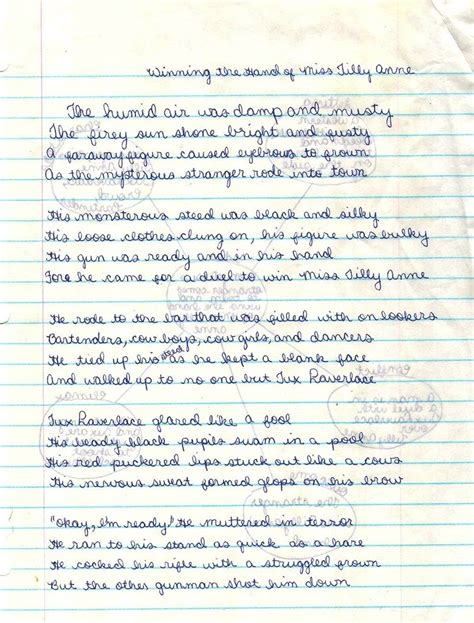 Winning the Hand of Miss Tilly Anne
The humid air was damp and musty
The firey sun shone bright and gusty
A faraway figure caused eyebrows to frown
As the mysterous stranger rode into town
His monsterous steed was black and silky
His loose clothes clung on, his figure was bulky
His gun was ready and in his hand
Fore he came for a duel to win Miss Tilly Anne
He rode to the bar that was filled with on lookers
Bartenders, cow boys, cow girls, and dancers
He tied up his steed as he kept a blank face
And walked up to no one but Tux Raverlace
Tux Raverlace glared like a fool
His beady black pupils swam in a pool
His red puckered lips stuck out like a cows
His nervous swat formed glops on his brow
"Okay, I'm ready." He muttered in terror
He ran to his stand as quick as a hare
He cocked his rifle with a struggled frown
But the other gunman shot him down